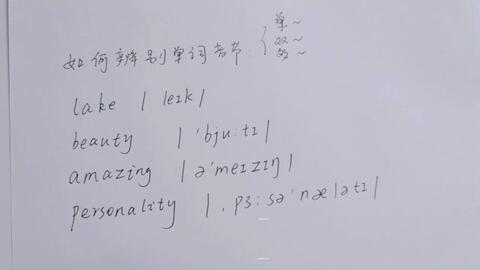 如何辨别单词音节：{单~
双~
多~
lake | leɪk |
beauty | ˈbjuːtɪ |
amazing | əˈmeɪzɪŋ |
personality | ˌpɜːsəˈnælətɪ |